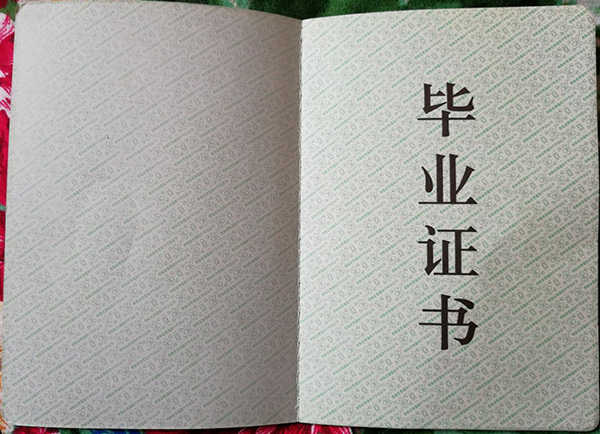 毕业证书